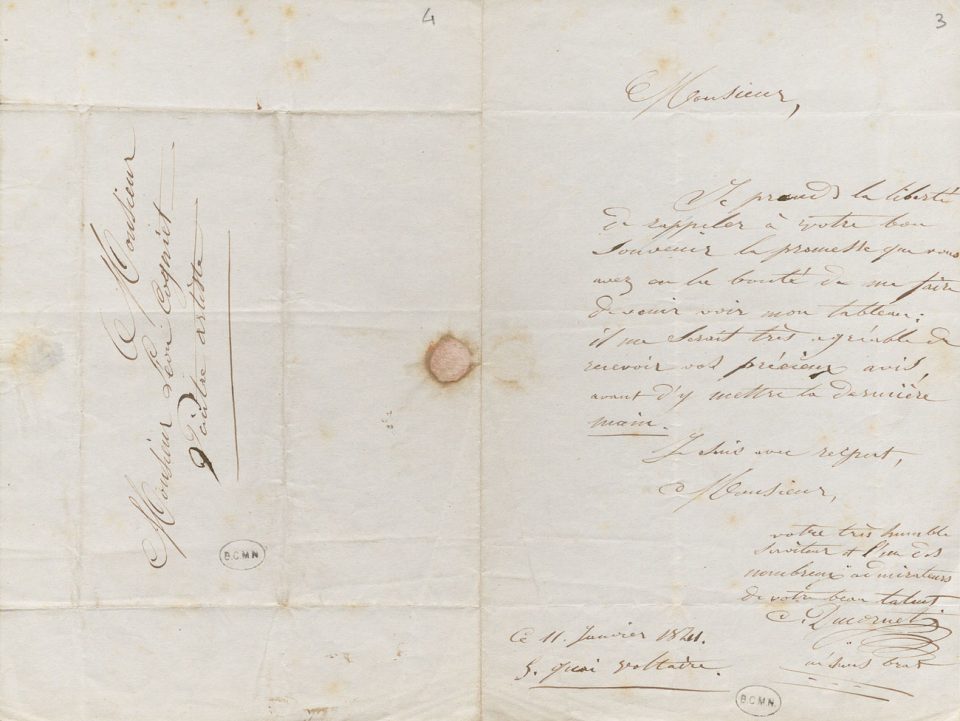 4
A Monsieur
Monsieur Léon Cogniet
Peintre artiste
B.C.M.N.
3
Monsieur,
Je prends la liberté
de rappeler à votre bon
souvenir la promesse que vous
avez eu la bonté de me faire
de venir voir mon tableau;
il me serait très agréable de
recevoir vos précieux avis,
avant d'y mettre la dernière
main.
Je suis avec respect,
Monsieur,
votre très humble
serviteur et l'un des
nombreux admirateurs
de votre beau talent
C. Ducornet
né sans bras
Ce 11. Janvier 1841.
5. quai Voltaire.
B.C.M.N.